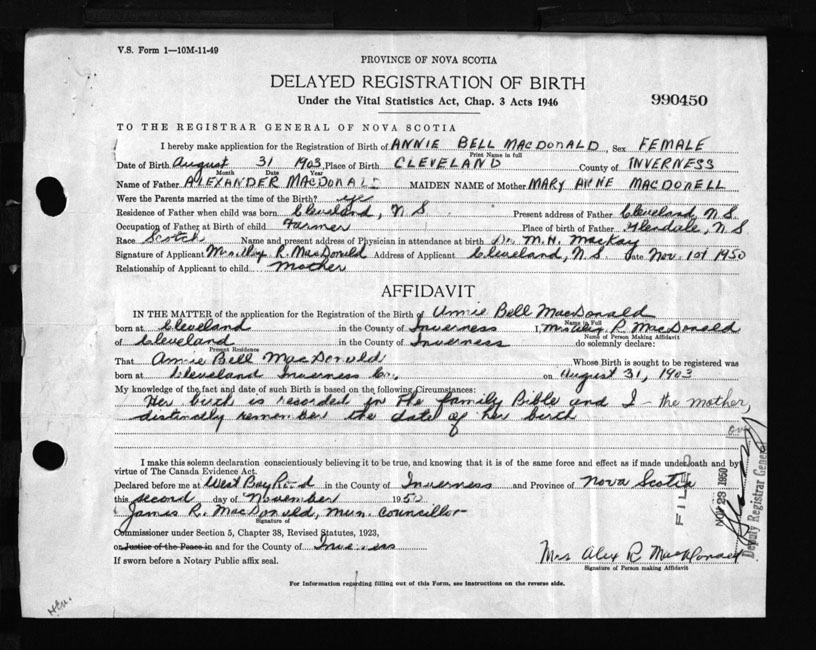 V.S. Form 1—10M-11-49
PROVINCE OF NOVA SCOTIA
DELAYED REGISTRATION OF BIRTH
Under the Vital Statistics Act, Chap. 3 Acts 1946
990450
TO THE REGISTRAR GENERAL OF NOVA SCOTIA
I hereby make application for the Registration of Birth of ANNIE BELL MACDONALD, Sex FEMALE
Print Name in full
Date of Birth August 31 1903, Place of Birth CLEVELAND County of INVERNESS
Month Date Year
Name of Father ALEXANDER MACDONALD MAIDEN NAME of Mother MARY ANNE MACDONELL
Were the Parents married at the time of the Birth?
Residence of Father when child was born Cleveland, N S Present address of Father Cleveland, N.S.
Occupation of Father at Birth of child Farmer Place of birth of Father Glendale, N.S
Race Scotch Name and present address of Physician in attendance at birth Dr. M.H. MacKay
Signature of Applicant R. MacDonald Address of Applicant Cleveland, N.S. Date Nov. 1st 1950
Relationship of Applicant to child Mother
AFFIDAVIT
IN THE MATTER of the application for the Registration of Birth of Annie Bell MacDonald
Name in Full
born at Cleveland in the County of Inverness I, Mrs Alex R. MacDonald
Name of Person Making Affidavit
of Cleveland in the County of Inverness do solemnly declare:
Present Residence
That Annie Bell MacDonald Whose Birth is sought to be registered was
born at Cleveland Inverness Co., on August 31, 1903
My knowledge of the fact and date of such Birth is based on the following Circumstances:
Her birth is recorded in the family Bible and I - the mother,
distinctly remember the date of her birth
I make this solemn declaration conscientiously believing it to be true, and knowing that it is of the same force and effect as if made under oath and by
virtue of The Canada Evidence Act.
Declared before me at West Bay Road in the County of Inverness and Province of Nova Scotia
this second day of November 1950
James R. MacDonald, Mun. Councillor
Signature of
Commissioner under Section 5, Chapter 38, Revised Statutes, 1923,
or Justice of the Peace in and for the County of Inverness
If sworn before a Notary Public affix seal.
Mrs Alex R MacDonald
Signature of Person making Affidavit
For Information regarding filling out of this Form, see instructions on the reverse side.
FILED
NOV 23 1950
Deputy Registrar General